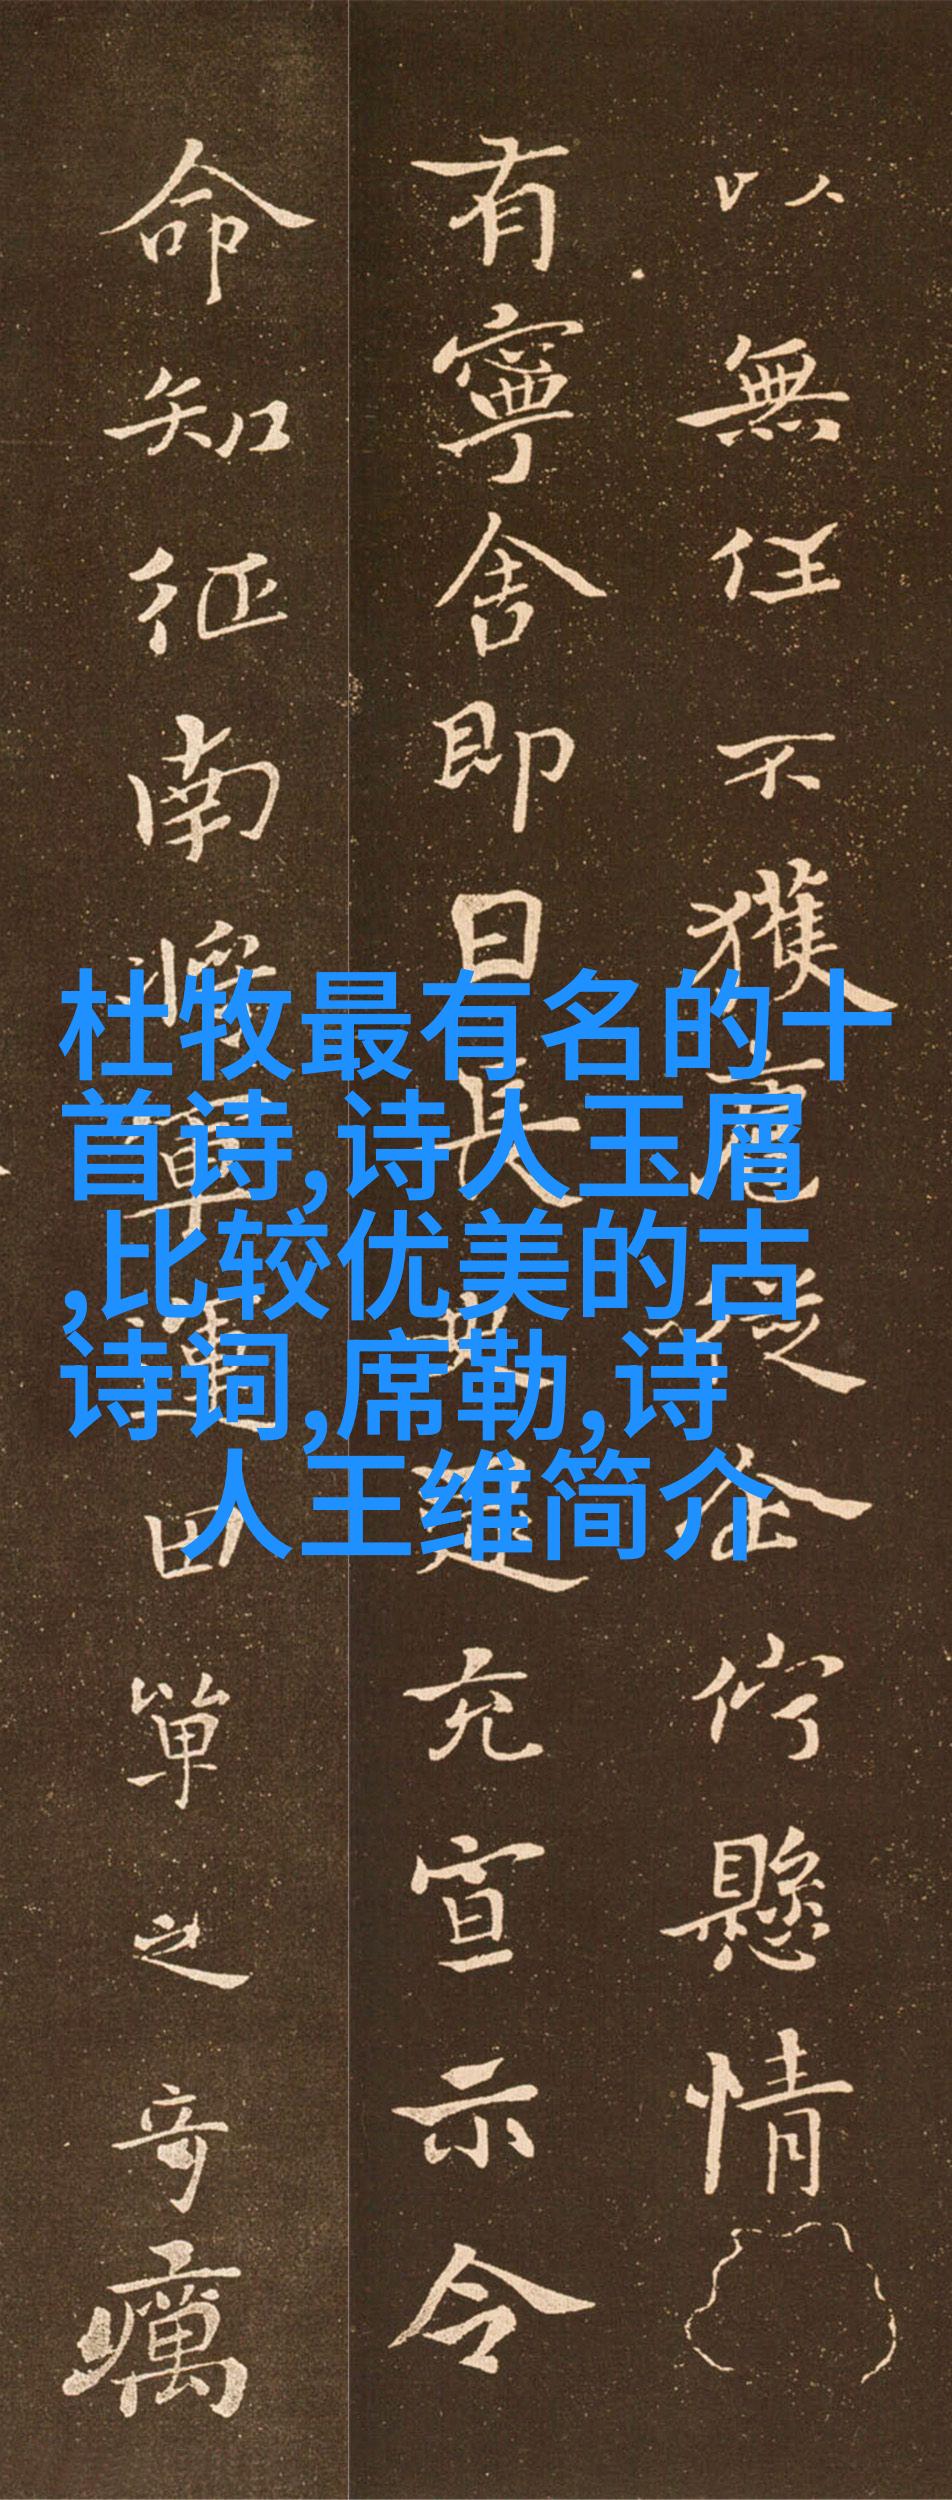 以無任不獲扈從企佇懸情
有寧舍即日長史逮充宣示令
命知征南將軍運田單之奇癘
杜牧最有名的十
首诗,诗人玉屑
,比较优美的古
诗词,席勒,诗
人王维简介